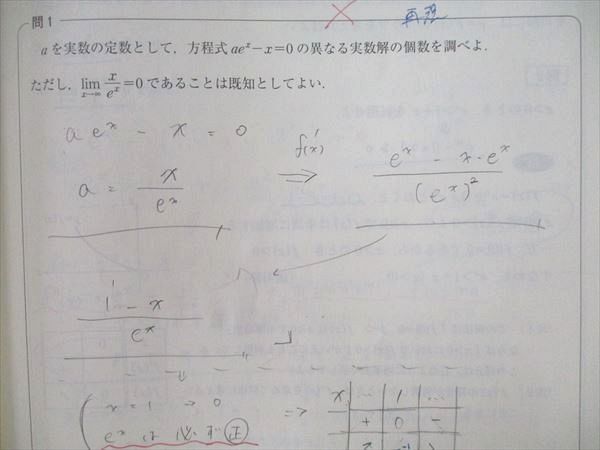 問1
再現
aを実数の定数として，方程式 ae^x−x=0 の異なる実数解の個数を調べよ．
ただし，lim x→∞ x/e^x=0 であることは既知としてよい．
a e^x − x = 0
a = x/e^x ⇒ f'(x) (e^x − x・e^x)/(e^x)^2
(1 − x)/e^x
x = 1 → 0 ⇒ x … 1 …
e^x は 必ず 正 + 0 −